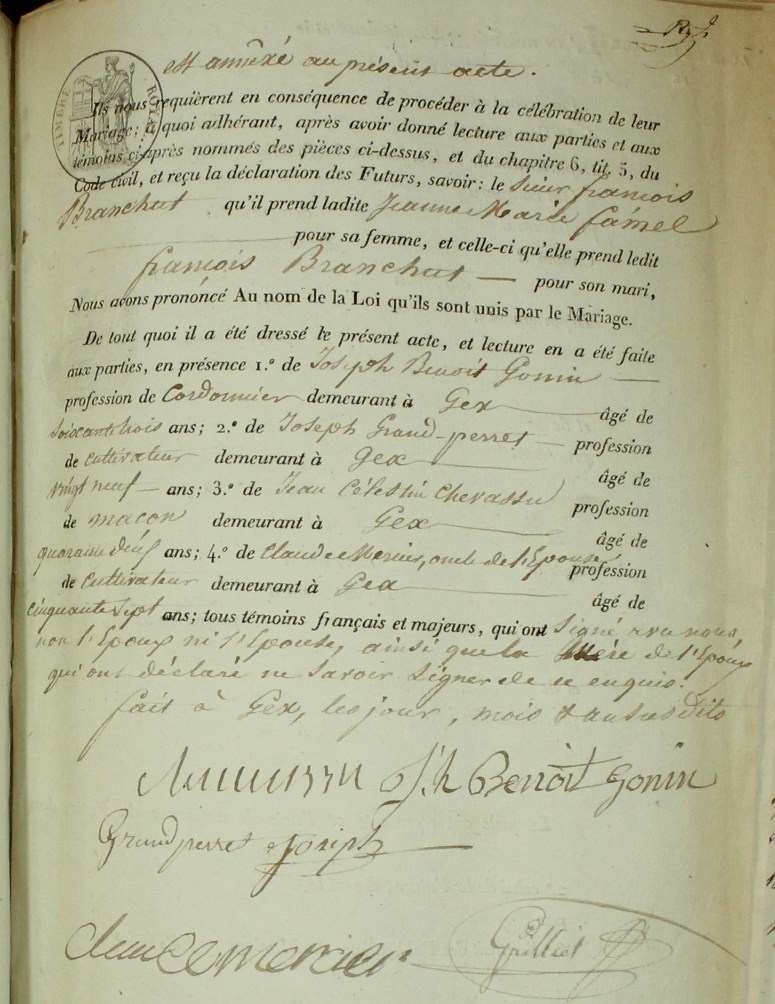 est annéxé au présent acte.
TIMBRE ROYAL
Ils nous requièrent en conséquence de procéder à la célébration de leur
Mariage; à quoi adhérant, après avoir donné lecture aux parties et aux
témoins ci-après nommés des pièces ci-dessus, et du chapitre 6, tit. 5, du
Code civil, et reçu la déclaration des Futurs, savoir: le Sieur françois
Branchut qu'il prend ladite Jeanne Marie famel
pour sa femme, et celle-ci qu'elle prend ledit
françois Branchut pour son mari,
Nous avons prononcé Au nom de la Loi qu'ils sont unis par le Mariage.
De tout quoi il a été dressé le présent acte, et lecture en a été faite
aux parties, en présence 1.° de Joseph Benoit Gonin
profession de Cordonnier demeurant à Gex âgé de
soixante trois ans; 2.° de Joseph Grand-perret profession
de cultivateur demeurant à Gex âgé de
vingt neuf ans; 3.° de Jean Célestin Chevassu profession
de maçon demeurant à Gex âgé de
quarante deux ans; 4.° de Claude Mercier, oncle de l'Epouse profession
de Cultivateur demeurant à Gex âgé de
cinquante sept ans; tous témoins français et majeurs, qui ont Signé avec nous,
non l'Epoux ni l'Epouse, ainsi que la mère de l'Epoux
qui ont déclaré ne Savoir Signer de ce enquis.
fait à Gex, les jour, mois & an susdits
J.h Benoit Gonin
Grandperret joseph
Claude mercier